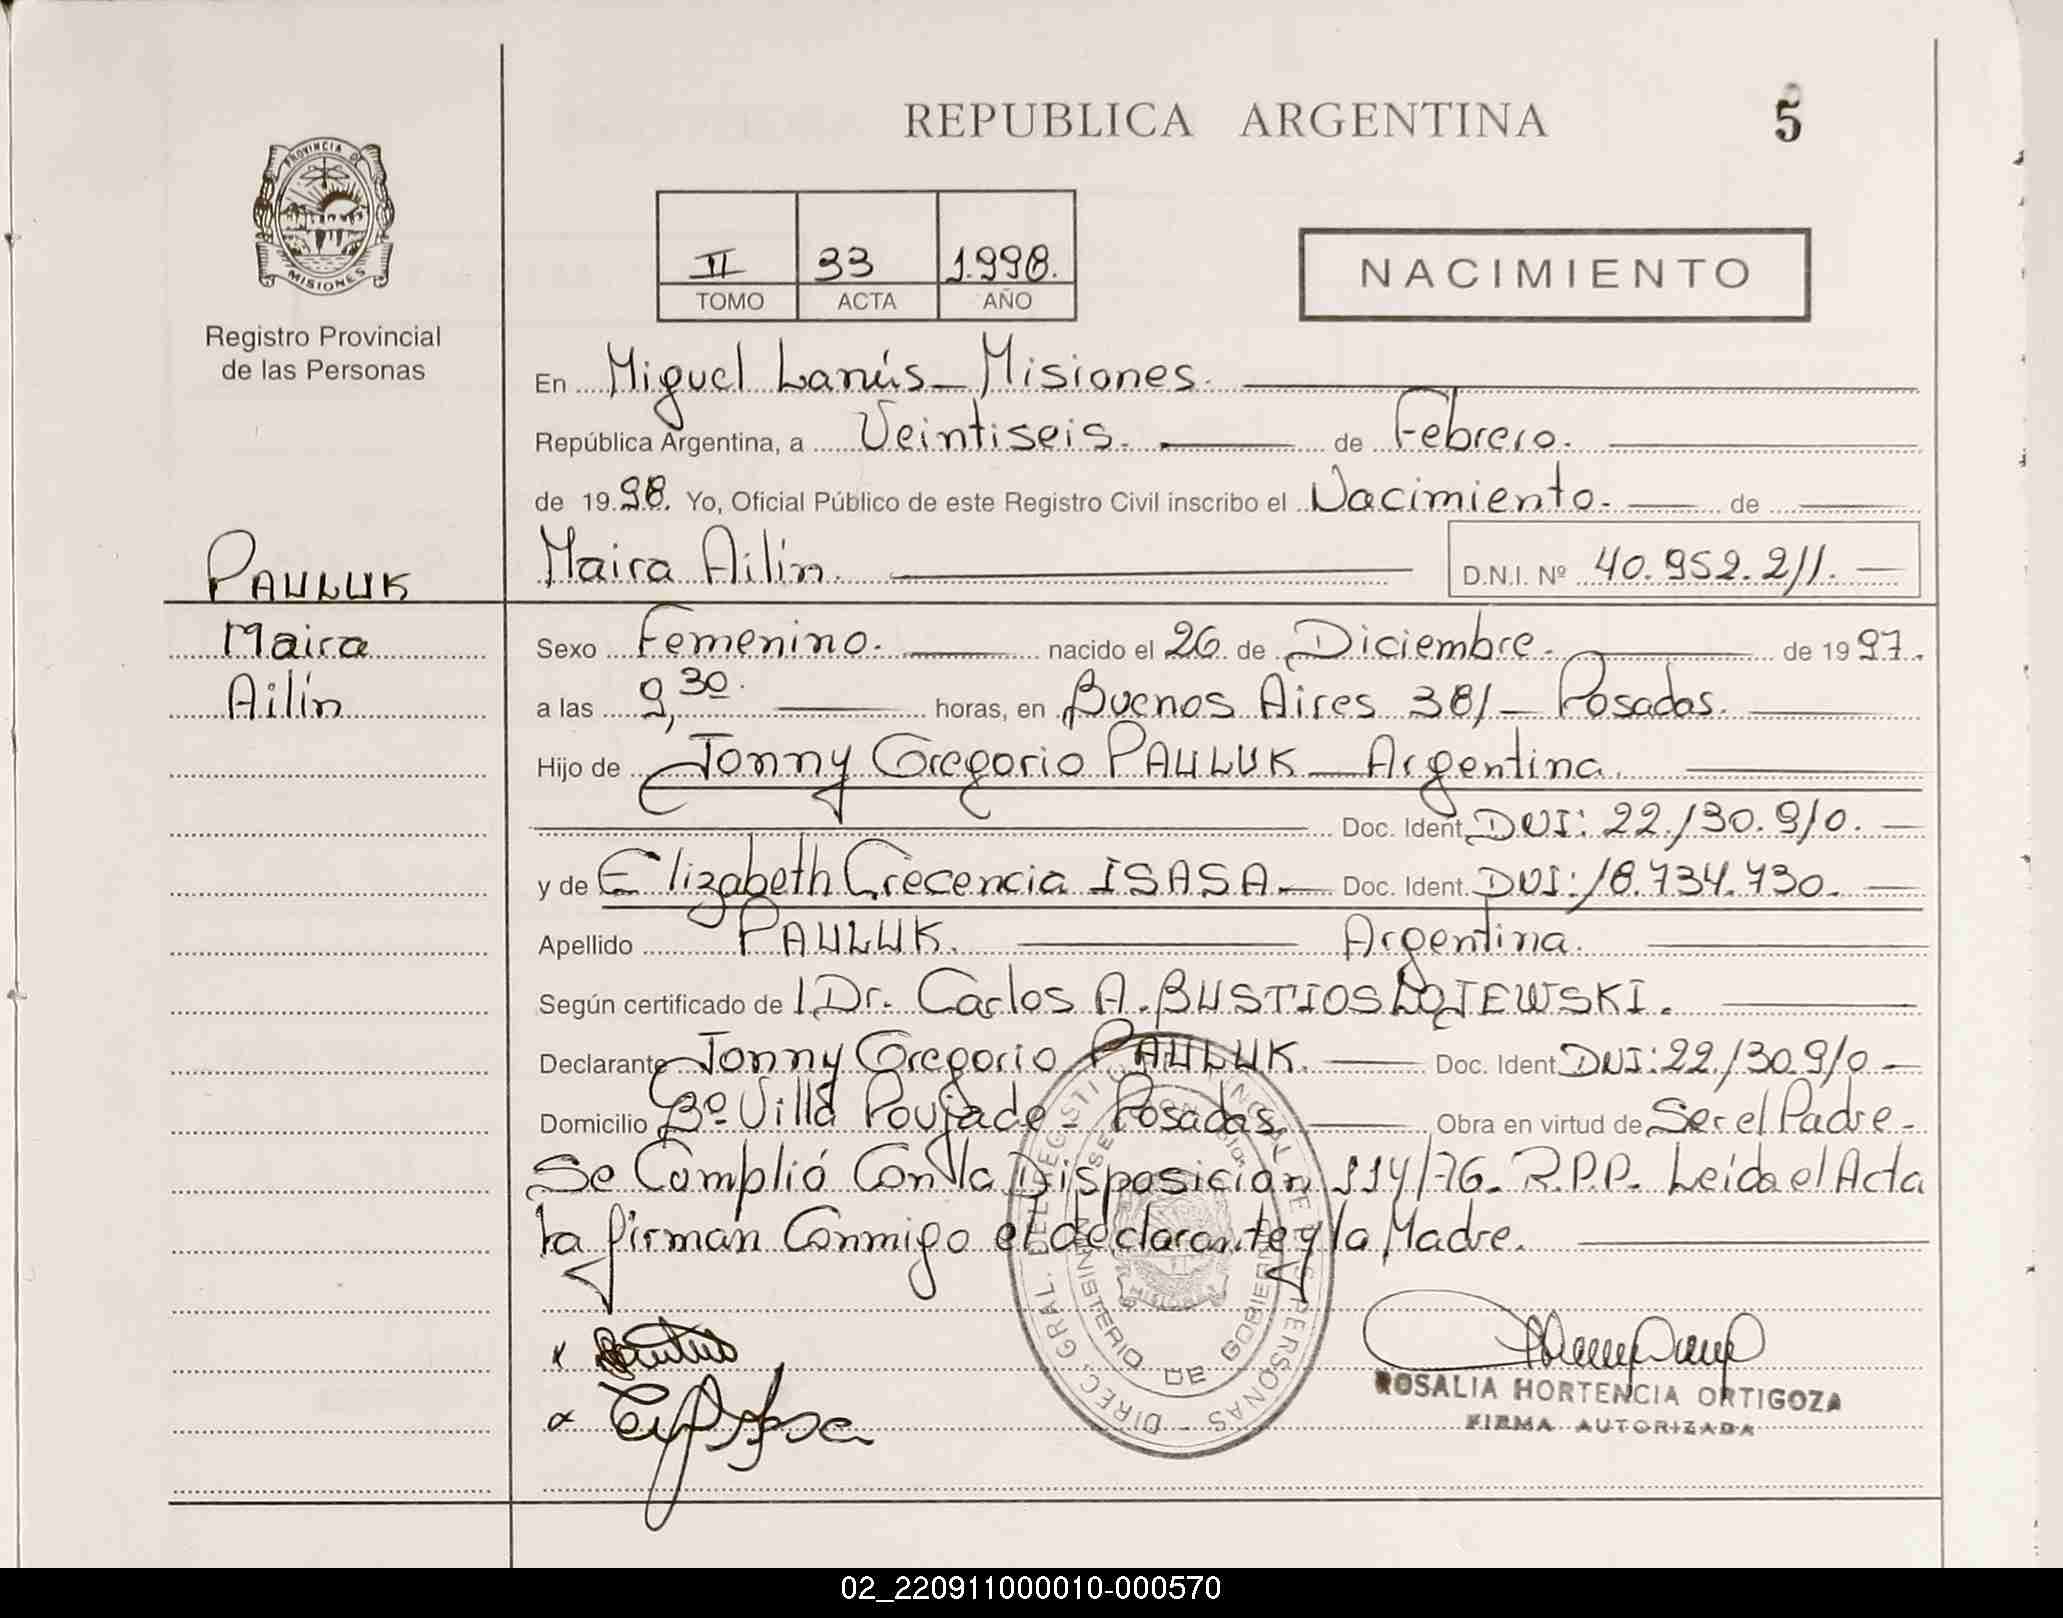 REPUBLICA ARGENTINA
5
PROVINCIA DE
MISIONES
Registro Provincial
de las Personas
II 33 1.998.
TOMO ACTA AÑO
NACIMIENTO
En Miguel Lanús - Misiones.
República Argentina, a Veintiseis. de Febrero.
de 19.98. Yo, Oficial Público de este Registro Civil inscribo el Nacimiento. de
PAULUK
Maira Ailín. D.N.I. Nº 40.952.211.
Maira
Sexo Femenino. nacido el 26 de Diciembre. de 1997.
Ailín
a las 9,30. horas, en Buenos Aires 381 - Posadas.
Hijo de Jonny Gregorio PAULUK - Argentina.
Doc. Ident. DNI: 22.130.910.
y de Elizabeth Crecencia ISASA - Doc. Ident. DNI: 18.734.730.
Apellido PAULUK. Argentina.
Según certificado de Dr. Carlos A. BUSTIOS
Declarante Jonny Gregorio PAULUK. Doc. Ident. DNI: 22.130.910 -
Domicilio Bº Villa Poujade - Posadas. Obra en virtud de Ser el Padre -
Se Complió Con la Disposición 114/76. R.P.P. Leída el Acta
la firman Conmigo el declarante y la Madre.
DIREC. GRAL. DEL REGISTRO PROVINCIAL DE LAS PERSONAS
MINISTERIO DE GOBIERNO
MISIONES
ROSALIA HORTENCIA ORTIGOZA
FIRMA AUTORIZADA
02_220911000010-000570